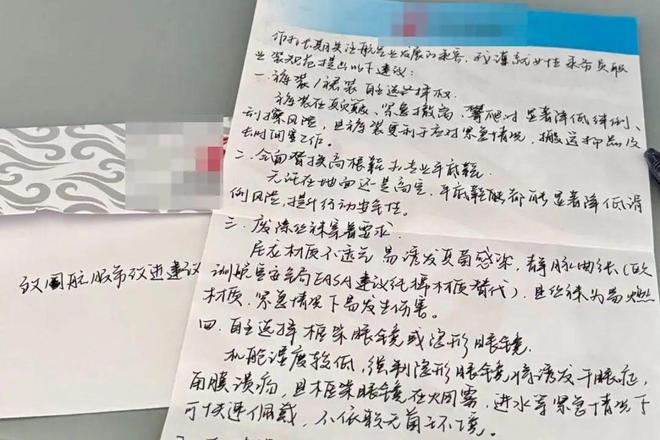 作为长期关注航空业发展的乘客，我谨就女性乘务员职
业装规范提出以下建议：
一. 裤装/裙装自主选择权.
裤装在颠簸、紧急撤离、攀爬时显著降低绊倒、
刮擦风险，且裤装更利于应对紧急情况，搬运物品及
长时间工作。
二. 全面替换高跟鞋为专业平底鞋.
无论在地面还是高空，平底鞋都能显著降低滑
倒风险，提升行动安全性。
三. 废除丝袜穿着要求.
尼龙材质不透气易诱发真菌感染，静脉曲张（欧
洲航空安全局EASA建议纯棉材质替代），且丝袜为易燃
材质，紧急情况下易发生伤害。
四. 自主选择框架眼镜或隐形眼镜.
机舱湿度较低，强制隐形眼镜将诱发干眼症，
角膜溃疡，且框架眼镜在火烟雾、进水等紧急情况下
可快速佩戴，不依赖无菌环境。
致国航服务改进建议